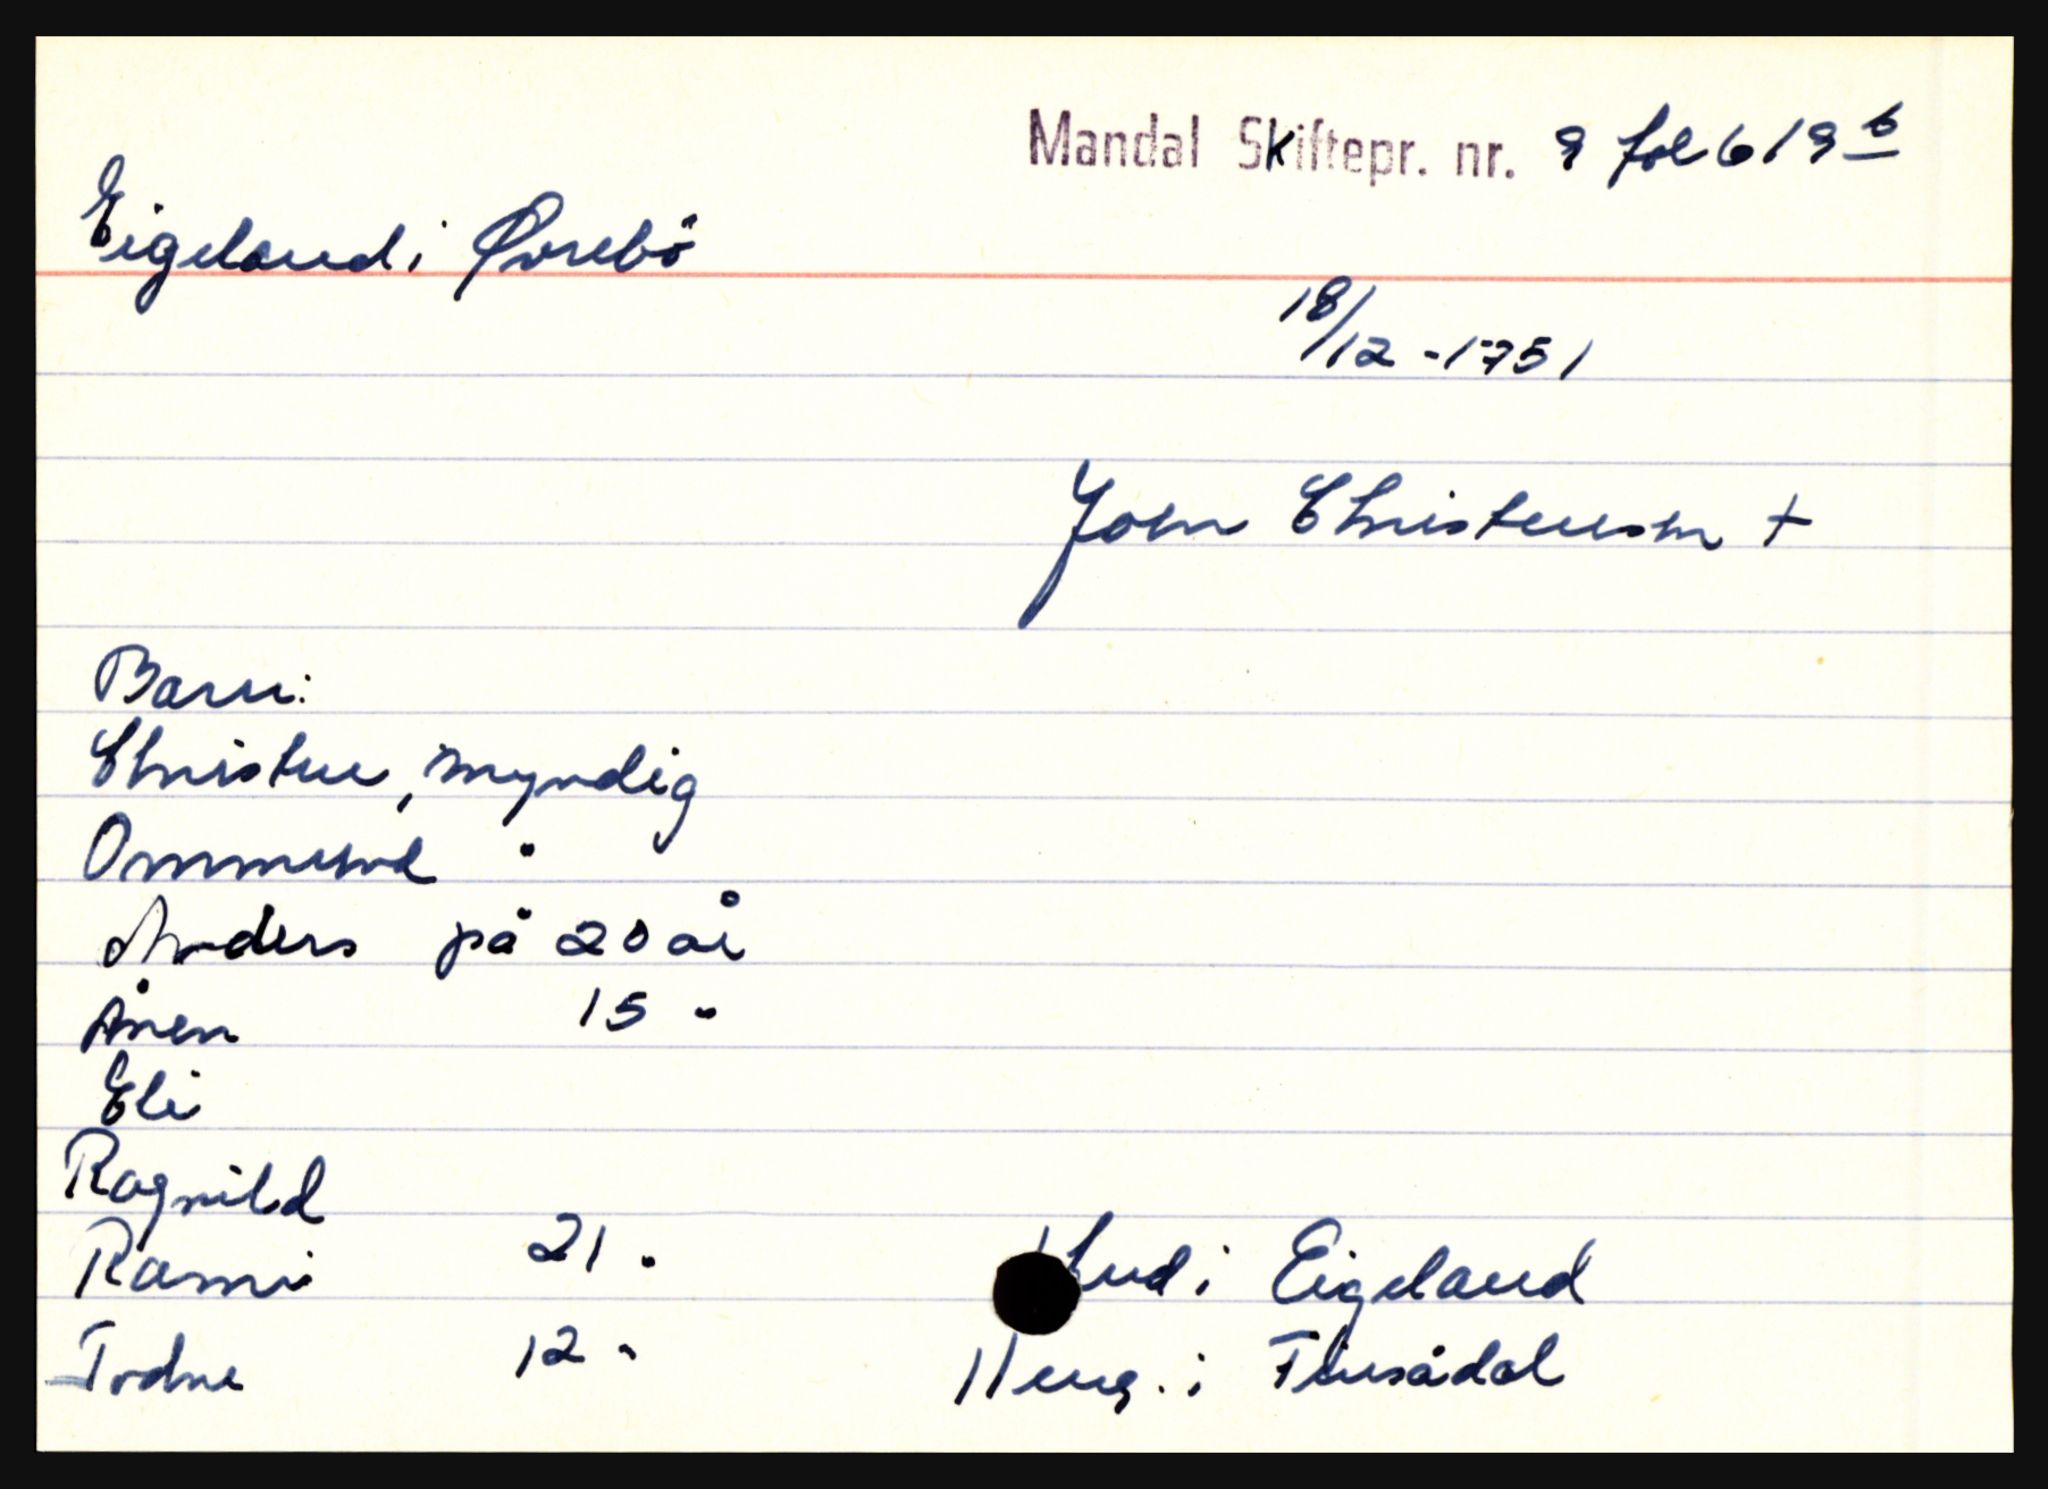 Mandal Skiftepr. nr. 9 fol 619 b
Eigeland i Øvrebö
18/12 - 1751
Joen Christensen +
Barn:
Christen, myndig
Ommund "
Anders på 20 år
Ånen 15 "
Eli
Ragnild
Rami 21 "
Todne 12 "
1 Hud i Eigeland
1 1 eng. i Flusådal